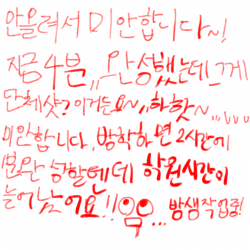 안올려서 미안합니다~!
지금4분,, 완성했는데 그게
단체샷? 이거든요~,,하핫~...
미안합니다, 방학하면 2시간에
분완성할텐데 학원시간이
늘어났어요!!유유... 밤샘작업중!